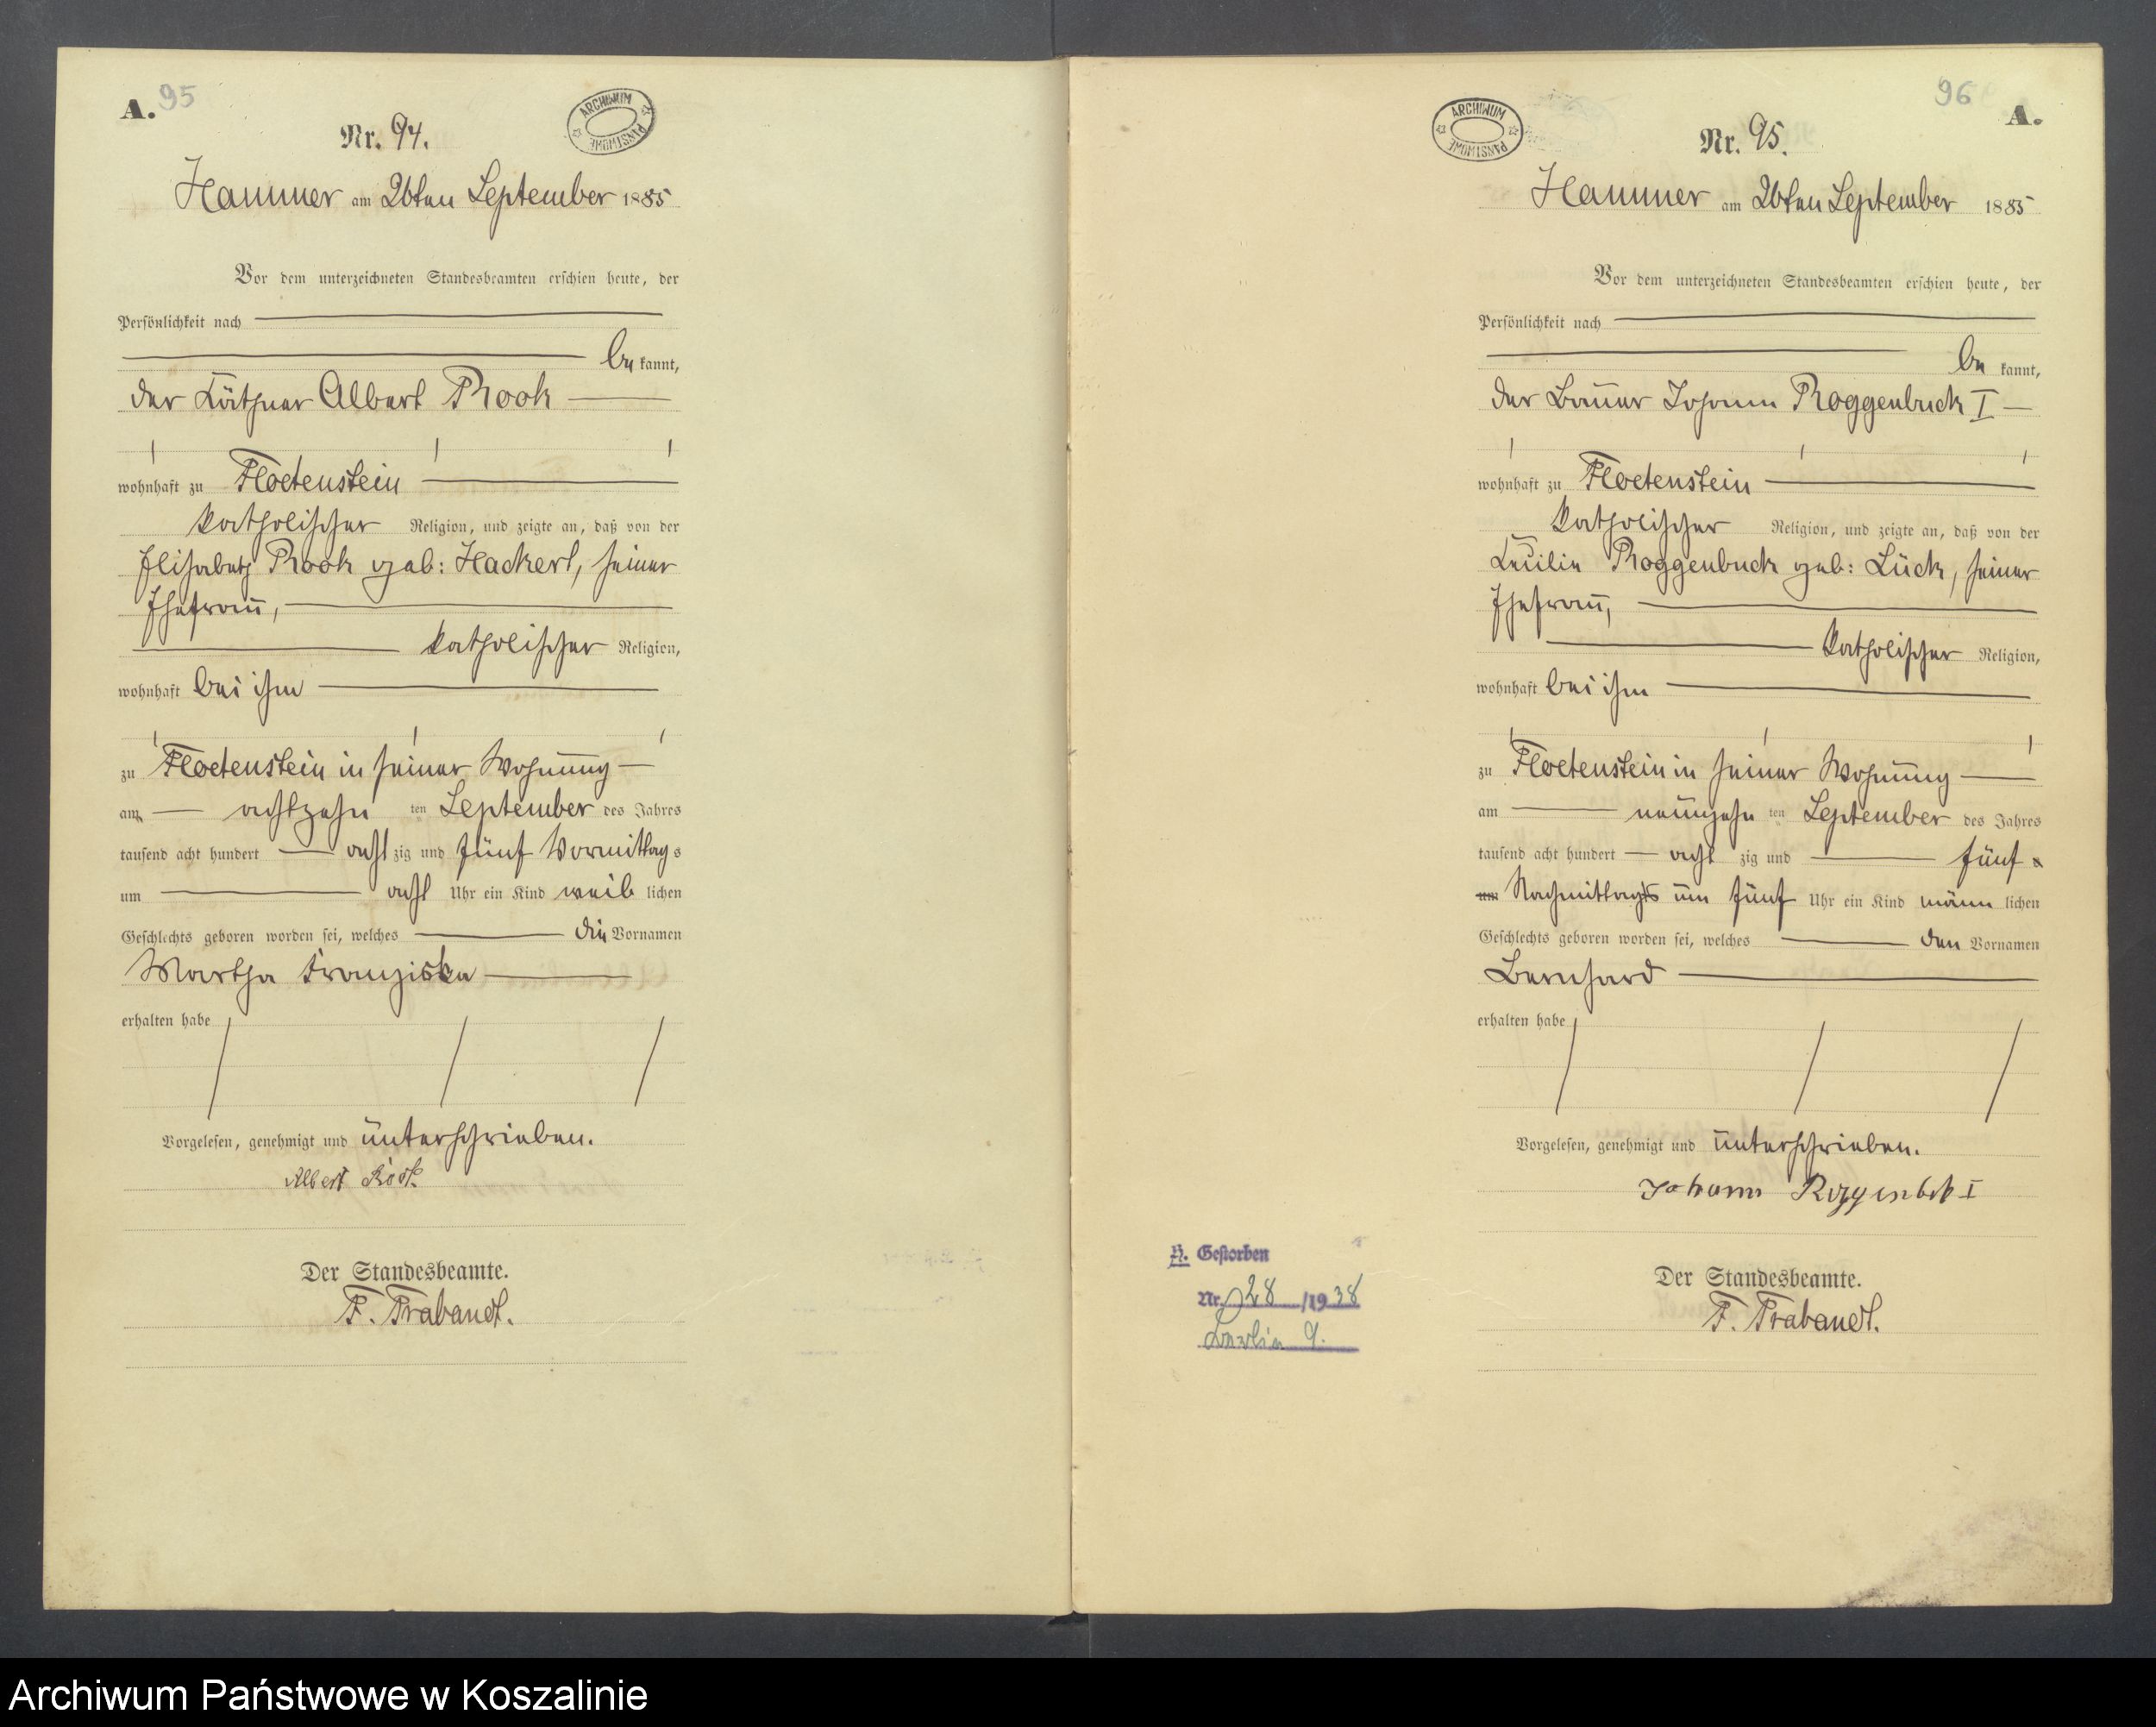 A. 95
ARCHIWUM PAŃSTWOWE
Nr. 94.
Hammer am 26ten September 1885
Vor dem unterzeichneten Standesbeamten erschien heute, der
Persönlichkeit nach
be kannt,
der Käthner Albert Rook
wohnhaft zu Floetenstein
katholischer Religion, und zeigte an, daß von der
Elisabeth Rook geb: Hackert, seiner
Ehefrau,
katholischer Religion,
wohnhaft bei ihm
zu Floetenstein in seiner Wohnung
am achtzehn ten September des Jahres
tausend acht hundert acht zig und fünf Vormittag s
um acht Uhr ein Kind weib lichen
Geschlechts geboren worden sei, welches die Vornamen
Martha Franziska
erhalten habe
Vorgelesen, genehmigt und unterschrieben.
Albert Rook.
Der Standesbeamte.
F. Trabandt.
96 A.
ARCHIWUM PAŃSTWOWE
Nr. 95.
Hammer am 26ten September 1885
Vor dem unterzeichneten Standesbeamten erschien heute, der
Persönlichkeit nach
be kannt,
der Bauer Johann Roggenbuck I
wohnhaft zu Floetenstein
katholischer Religion, und zeigte an, daß von der
Cecilie Roggenbuck geb: Lück, seiner
Ehefrau,
katholischer Religion,
wohnhaft bei ihm
zu Floetenstein in seiner Wohnung
am neunzehn ten September des Jahres
tausend acht hundert acht zig und fünf
um Nachmittags um fünf Uhr ein Kind männ lichen
Geschlechts geboren worden sei, welches den Vornamen
Bernhard
erhalten habe
Vorgelesen, genehmigt und unterschrieben.
Johann Roggenbuk I
Der Standesbeamte.
F. Trabandt.
H. Gestorben
Nr. 28 /1938
9.
Archiwum Państwowe w Koszalinie